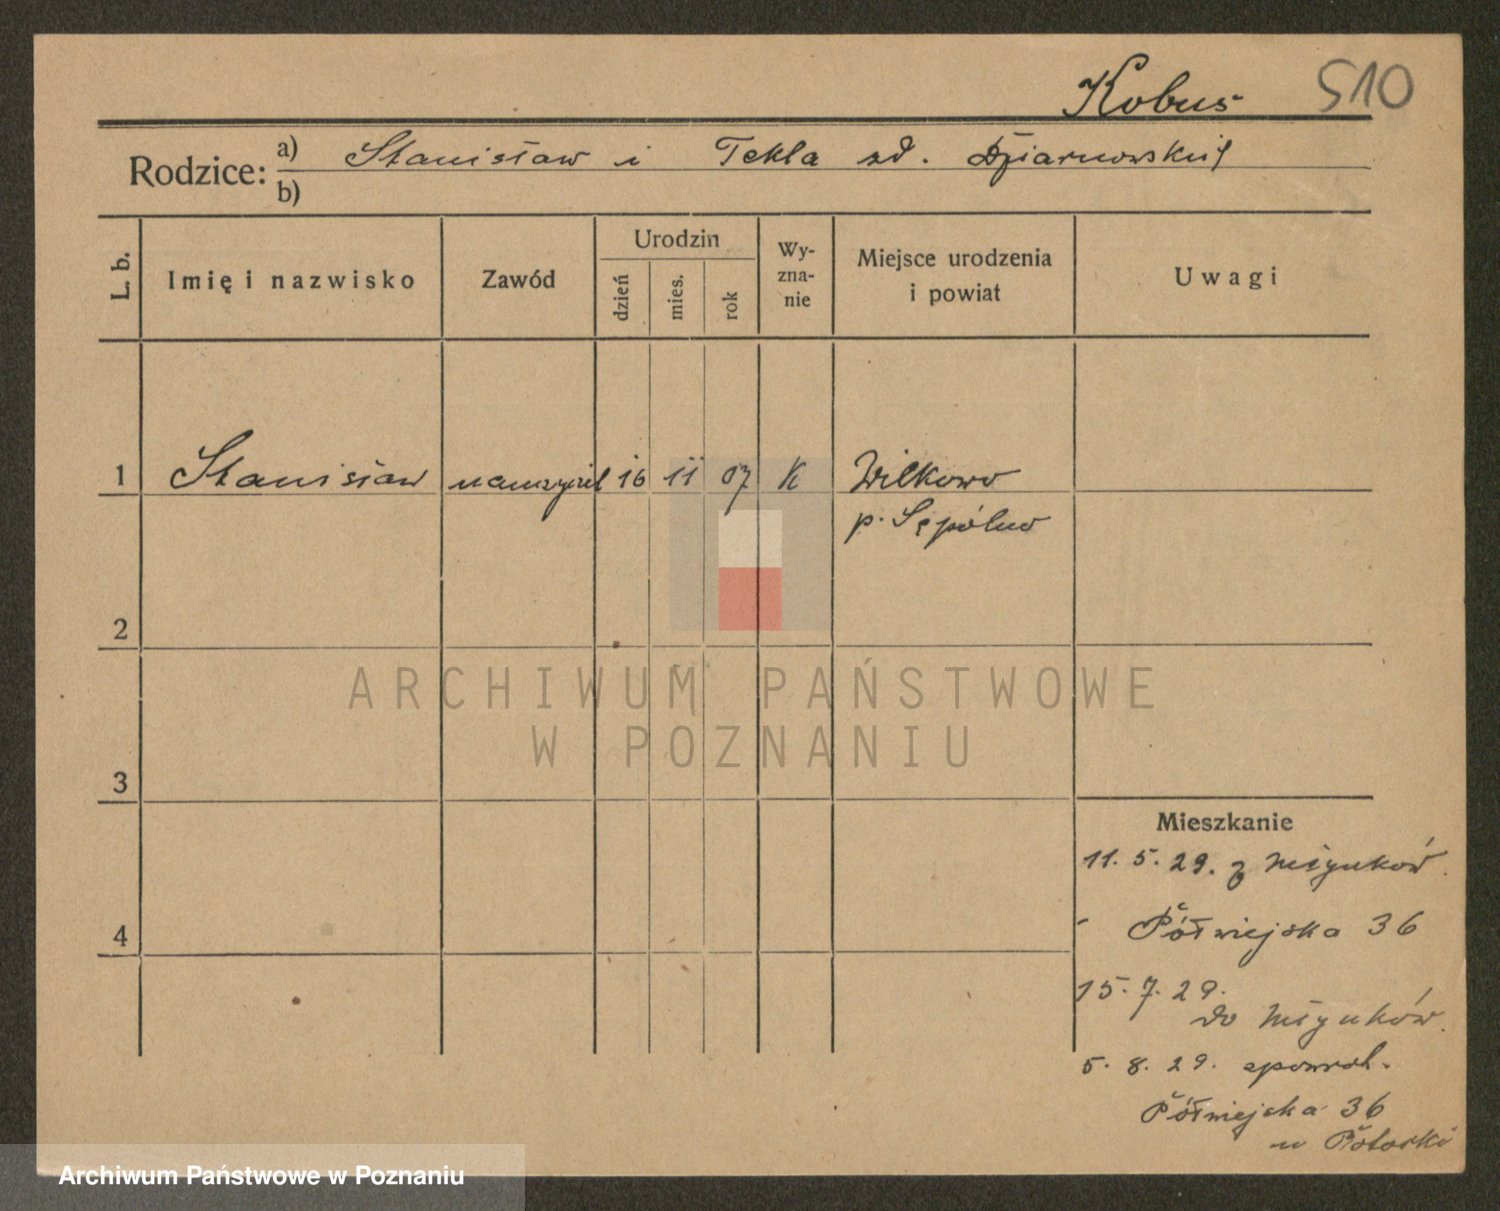 Kobus 510
Rodzice: a) Stanisław i Tekla zd. Dziarnowskich
b)
L. b.
Imię i nazwisko
Zawód
Urodzin
dzień
mies.
rok
Wy-
zna-
nie
Miejsce urodzenia
i powiat
Uwagi
1 Stanisław nauczyciel 16 11 07 K Wilkowo
p. Sępólno
2
3
4
Mieszkanie
11. 5. 29. z
Półwiejska 36
15. 7. 29.
do
5. 8. 29.
Półwiejska 36
u
ARCHIWUM PAŃSTWOWE
W POZNANIU
Archiwum Państwowe w Poznaniu